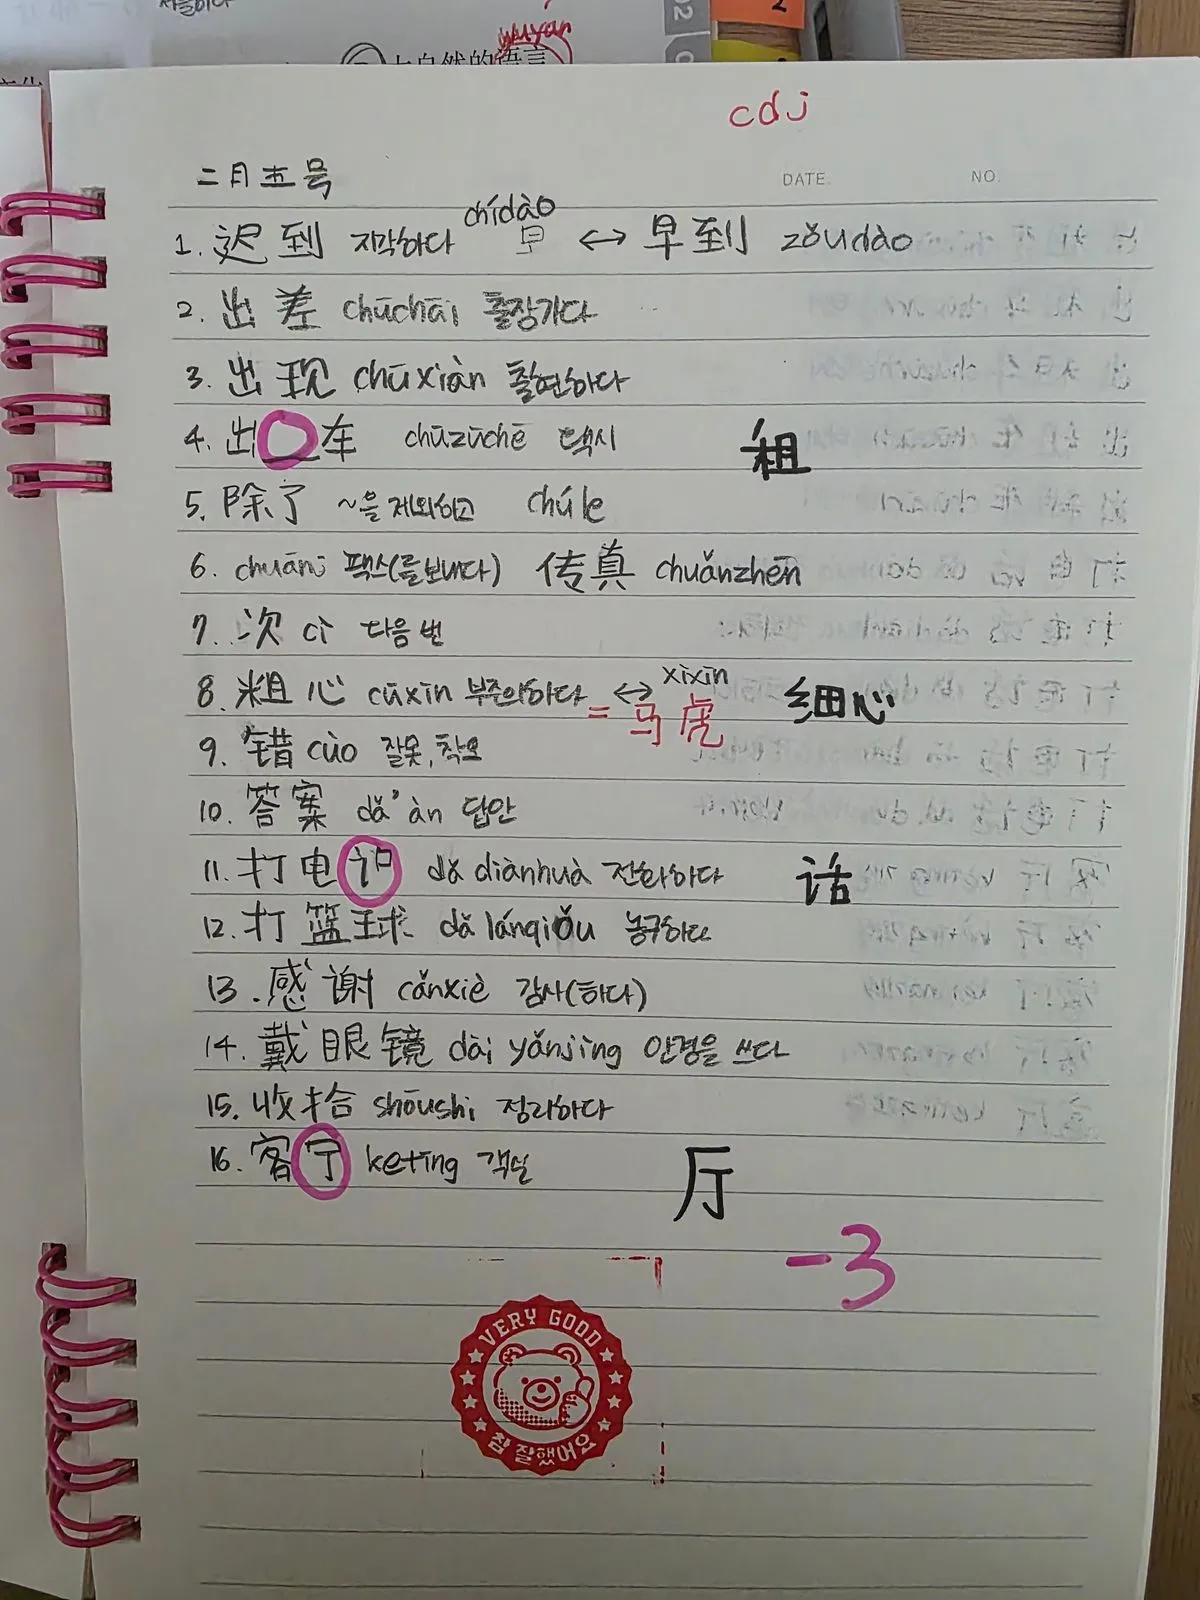 wuyan
大自然的语言
cdj
二月五号
DATE.
NO.
1. 迟到 지각하다 chídào 早 ↔ 早到 zǒudào
2. 出差 chūchāi 출장가다
3. 出现 chūxiàn 출현하다
4. 出〇车 chūzūchē 택시 租
5. 除了 ~을 제외하고 chúle
6. chuānì 팩스(를보내다) 传真 chuǎnzhēn
7. 次 cì 다음 번
8. 粗心 cūxīn 부주의하다 ↔ xìxīn 细心
= 马虎
9. 错 cùo 잘못, 착오
10. 答案 dǎ'àn 답안
11. 打电 dǎ diànhuà 전화하다 话
12. 打篮球 dǎ lánqiǒu 농구하다
13. 感谢 cǎnxiè 감사(하다)
14. 戴眼镜 dài yǎnjìng 안경을 쓰다
15. 收拾 shōushi 정리하다
16. 客宁 ketīng 객실 厅
-3
VERY GOOD
참 잘했어요